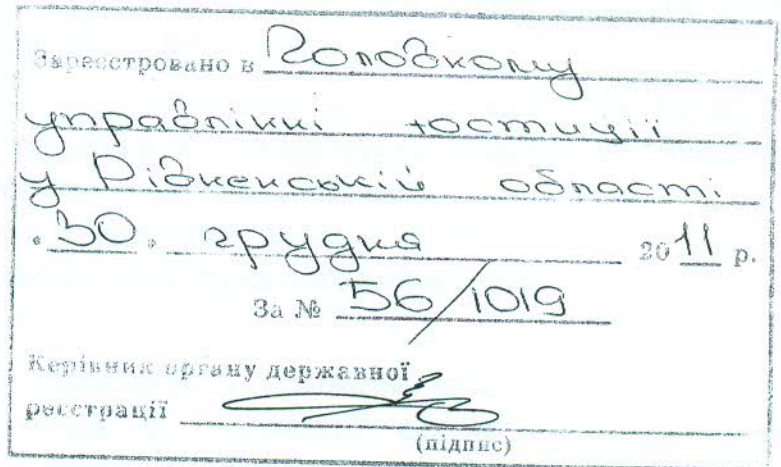 Зареєстровано в Головному
управлінні юстиції
у Рівненській області
"30" грудня 2011 р.
За № 56/1019
Керівник органу державної
реєстрації
(підпис)